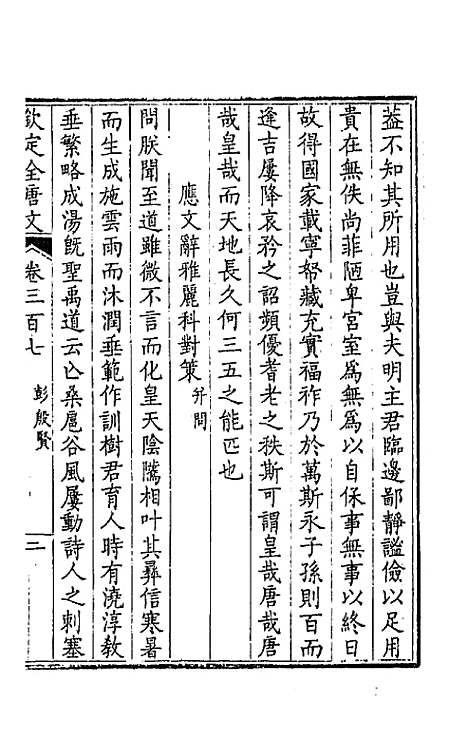 葢不知其所用也豈與夫明主君臨邊鄙靜謐儉以足用
貴在無佚尚菲陋卑宮室爲無爲以自保事無事以終日
故得國家載寧帑藏充實福祚乃於萬斯永子孫則百而
逢吉屢降哀矜之詔頻優耆老之秩斯可謂皇哉唐哉唐
哉皇哉而天地長久何三五之能匹也
應文辭雅麗科對策 并問
問朕聞至道雖微不言而化皇天陰騭相叶其彝信寒暑
而生成施雲雨而沐潤垂範作訓樹君育人時有澆淳敎
垂繁略成湯旣聖禹道云亾桑扈谷風屢動詩人之刺塞
欽定全唐文 卷三百七 彭殷賢 二